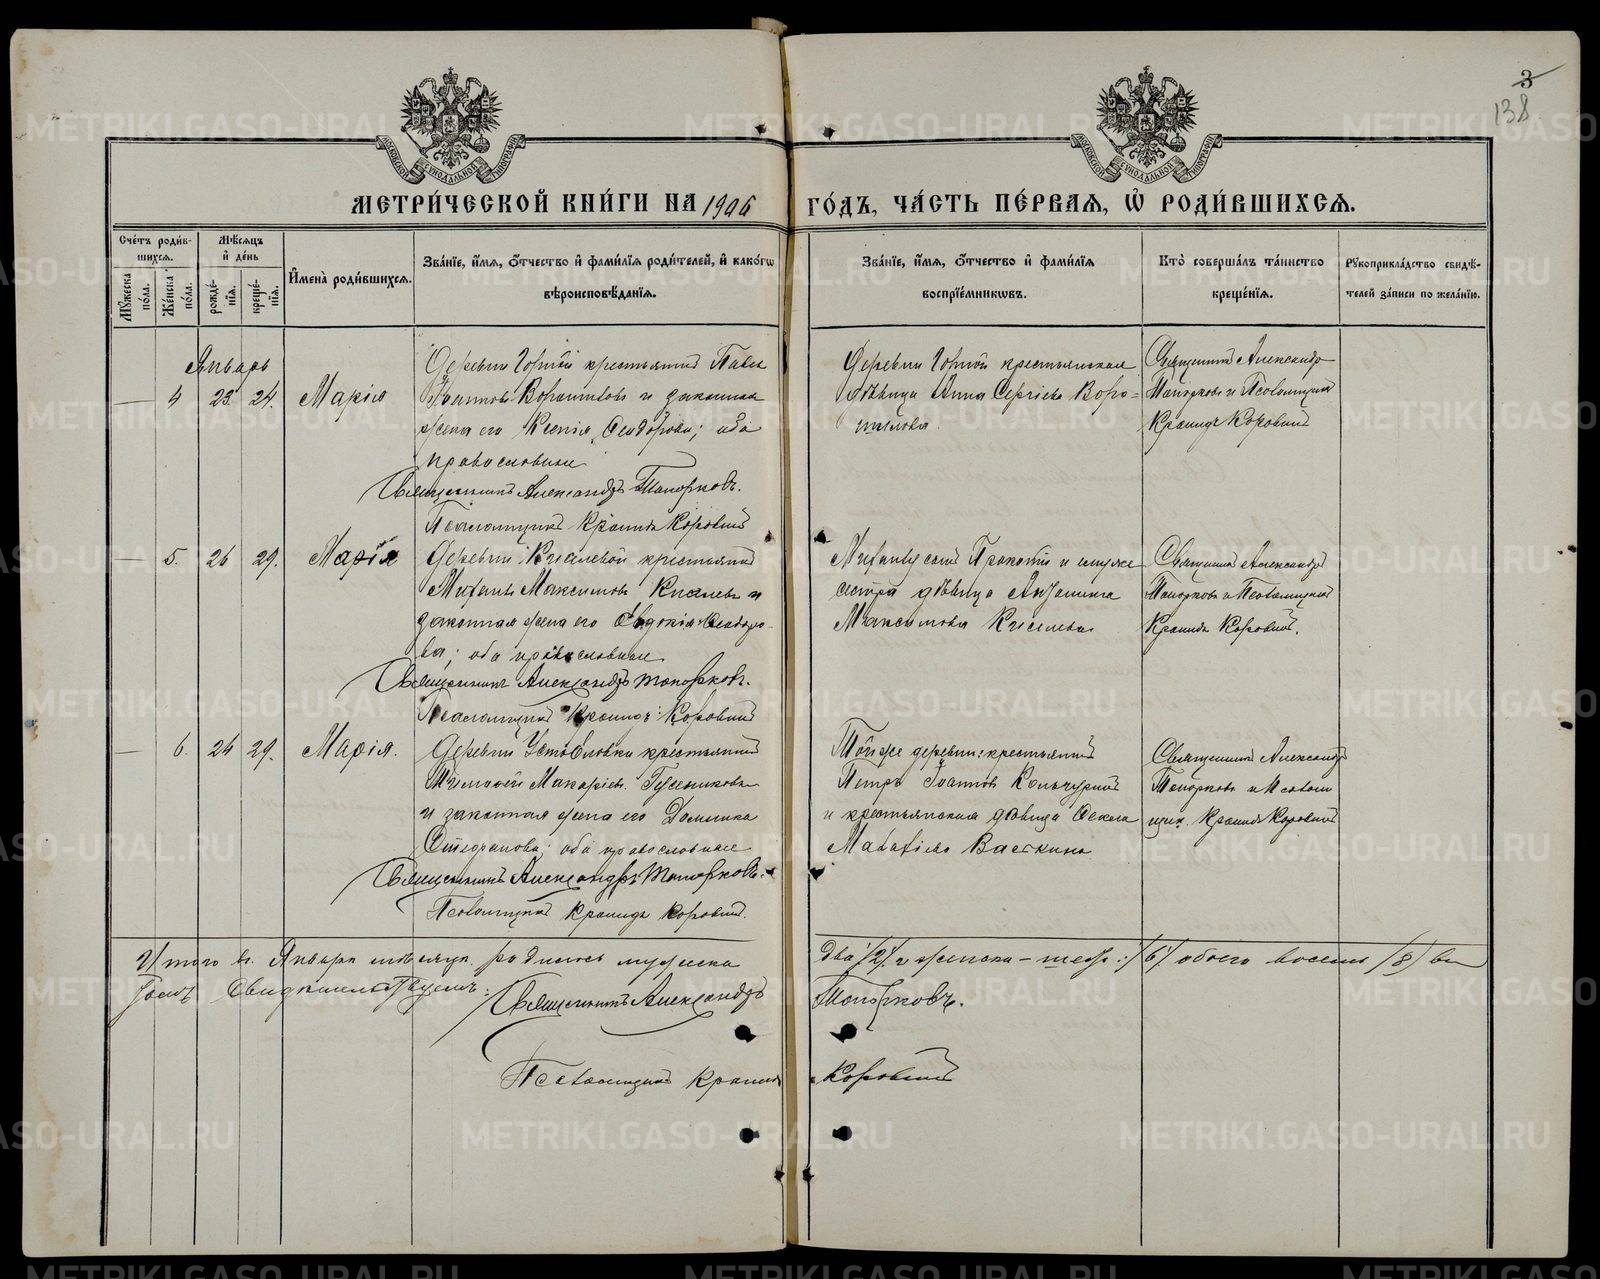 3
138
МОСКОВСКОЙ СУНОДАЛЬНОЙ ТИПОГРАФІИ
МОСКОВСКОЙ СУНОДАЛЬНОЙ ТИПОГРАФІИ
МЕТРИ́ЧЕСКОЙ КНИ́ГИ НА 1906 ГО́ДЪ, ЧА́СТЬ ПЕ́РВАѦ, Ѡ҆ РОДИ́ВШИХСѦ.
Сче́тъ роди́в-
шихсѧ.
Мꙋ́жеска по́ла.
Же́нска по́ла.
Мѣ́сѧцъ и҆ де́нь
рожде́-
нїѧ.
креще́-
нїѧ.
И҆мена̀ роди́вшихсѧ.
Зва́нїе, и҆́мѧ, ѻ҆́тчество и҆ фами́лїѧ роди́телей, и҆ како́гѡ
вѣроисповѣ́данїѧ.
Зва́нїе, и҆́мѧ, ѻ҆́тчество и҆ фами́лїѧ
воспрїе́мникѡвъ.
Кто̀ соверша́лъ та́инство
креще́нїѧ.
Рꙋкоприкла́дство свидѣ́-
телей за́писи по жела́нїю.
Январь
— 4 23. 24. Марія
Деревни крестьянинъ Павелъ
и законная
жена его Ксенія Ѳеодорова; оба
православные
Священникъ Александръ Топорковъ.
Псаломщикъ Кронидъ Коровинъ
Деревни крестьянская
дѣвица Анна Сергіева Воро-
шилова.
Священникъ Александръ
Топорковъ и Псаломщикъ
Кронидъ Коровинъ
— 5. 26 29. Марія
Деревни Киселевой крестьянинъ
Михаилъ Максимовъ Киселевъ и
законная жена его Евдокія Ѳеодоро-
ва; оба православные
Священникъ Александръ Топорковъ.
Псаломщикъ Кронидъ Коровинъ
сынъ Прокопій и
сестра дѣвица Антонина
Максимова Киселева
Священникъ Александръ
Топорковъ и Псаломщикъ
Кронидъ Коровинъ.
— 6. 24 29. Марія.
Деревни крестьянинъ
Тимофей Макаріевъ Гусельниковъ
и законная жена его Домника
Стефанова; оба православные
Священникъ Александръ Топорковъ.
Псаломщикъ Кронидъ Коровинъ.
Той же деревни: крестьянинъ
Петръ Іоанновъ Кольчуринъ
и крестьянская дѣвица Ѳекла
Матѳіева Васькина
Священникъ Александръ
Топорковъ и Псалом
щик. Кронидъ Коровинъ
Итого въ Январѣ мѣсяцѣ родилось мужска два /2/ и женска – шесть /6/ обоего восемь /8/ въ
чемъ Свидѣтельствуемъ: Священникъ Александръ Топорковъ.
Псаломщикъ Кронидъ Коровинъ